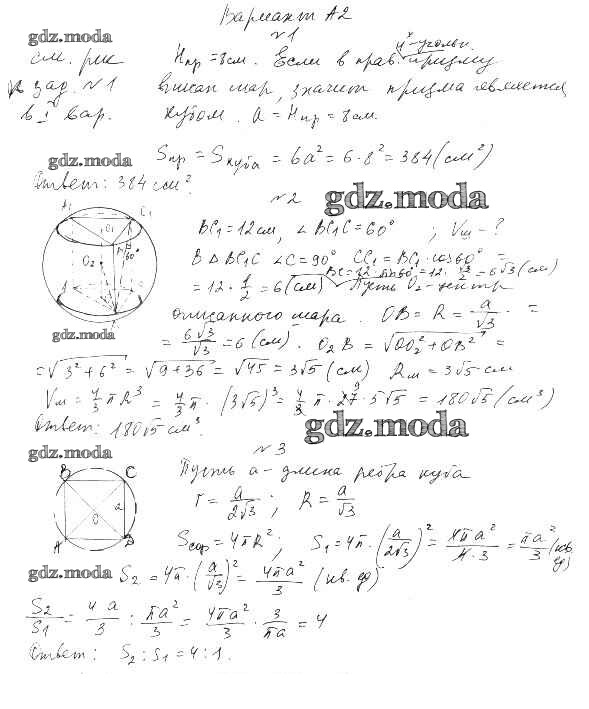 Вариант А2
gdz.moda
№1
см. рис Hпр = 8 см. Если в прав. 4х-угольн. призму
к зад. №1 вписан шар, значит призма является
в I вар. кубом. a = Hпр = 8 см.
gdz.moda
Sпр = Sкуба = 6a² = 6·8² = 384 (см²)
Ответ: 384 см².
№2
gdz.moda
BC₁ = 12 см, ∠BC₁C = 60° ; Vш - ?
В △BC₁C ∠C = 90° CC₁ = BC₁·cos60° =
= 12·1/2 = 6 (см) BC = 12·sin60° = 12·√3/2 = 6√3 (см) Пусть O₂ - центр
описанного шара. OB = R = a/√3 =
gdz.moda
= 6√3/√3 = 6 (см). O₂B = √(OO₂² + OB²) =
= √(3² + 6²) = √(9+36) = √45 = 3√5 (см) Rш = 3√5 см
Vш = 4/3 πR³ = 4/3 π·(3√5)³ = 4/3 π·27·5√5 = 180√5 (см³)
Ответ: 180√5 см³.
gdz.moda
gdz.moda
№3
Пусть a - длина ребра куба
r = a/2√3 ; R = a/√3
B C
O a
A D
Sсф = 4πR² ; S₁ = 4π·(a/2√3)² = 4πa²/4·3 = πa²/3 (кв. ед)
gdz.moda
S₂ = 4π·(a/√3)² = 4πa²/3 (кв. ед)
S₂/S₁ = 4a/3 : πa²/3 = 4πa²/3 · 3/πa = 4
Ответ: S₂ : S₁ = 4 : 1.